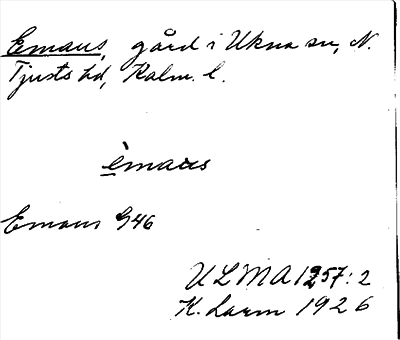 Emaus, gård i Ukna sn, N.
Tjusts hd, Kalm. l.
èmaus
Emaus G46
ULMA 1257:2
K. Larm 1926